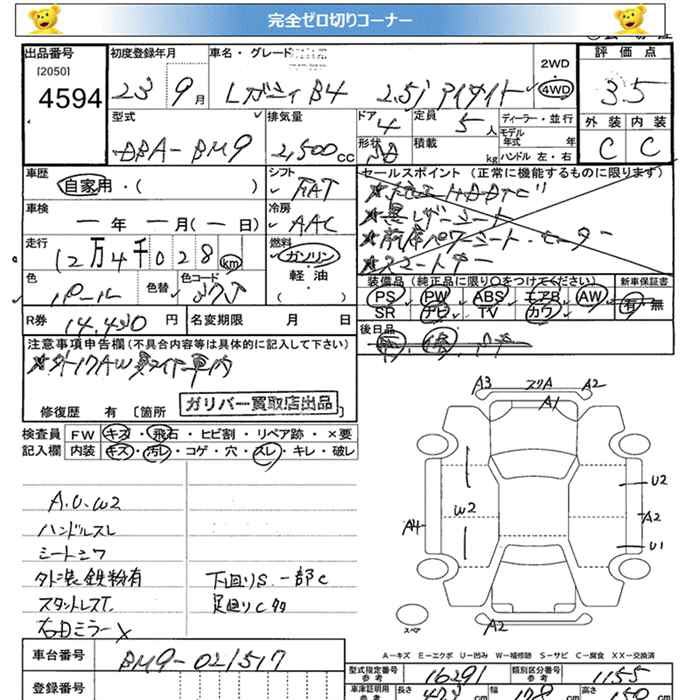 完全ゼロ切りコーナー
出品番号 初度登録年月 車名・グレード 2WD 評価点
[2050]
4594 23 9月 レガシィ B4 2.5i アイサイト 4WD 3.5
型式 排気量 ドア 定員 ディーラー・並行 外装 内装
4 5人 モデル年式 年
DBA-BM9 2,500cc 形状 積載 kg ハンドル 左・右 C C
車歴 シフト セールスポイント(正常に機能するものに限ります)
自家用・( ) FAT
車検 冷房 黒レザーシート
一年 一月(一日) AAC 前席パワーシート・ヒーター
走行 燃料 スマートキー
12万4千028km ガソリン
軽・油
色 色替 色コード ( )
パール 37J
装備品(純正品に限り○をつけてください) 新車保証書
PS PW ABS エアB AW 有・無
SR ナビ TV カワ
R券 14,430円 名変期限 月 日 後日品
注意事項申告欄(不具合内容等は具体的に記入して下さい)
修復歴 有[箇所 ガリバー買取店出品 ]
検査員 FW キズ・飛石・ヒビ割・リペア跡・×要
記入欄 内装 キズ・汚レ・コゲ・穴・スレ・キレ・破レ
A.U.W2
ハンドルスレ
シートシワ
外装鉄粉有 下回りS.一部C
足回りC
右ドミラーX
A3 スリA A2
A1
U2
W2
A4 A2
U1
スペア
A2
A-キズ E-エクボ U-凹み W-補修跡 S-サビ C-腐食 XX-交換済
車台番号 BM9-021517
型式指定番号 参考 16291 類別区分番号 参考 1155
登録番号
車庫証明用 参考 長さ 473cm 幅 178cm 高さ 150cm